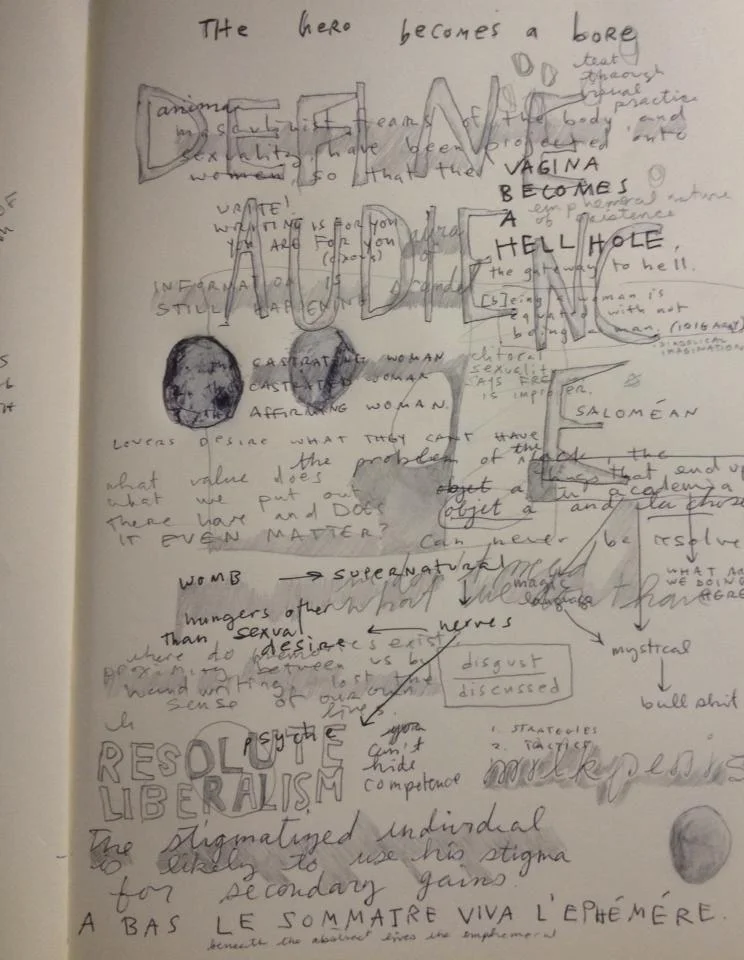 THE hero becomes a bore
test
through
visual
practice
DEFINE
anima
masculinist fears of the body and
sexuality, have been projected onto
women, so that the VAGINA
BECOMES
A
HELL HOLE,
the gateway to hell.
emphemeral nature
of existence
WRITE!
WRITING IS FOR YOU
YOU ARE FOR YOU
(cixous)
AUDIENCE
INFORMATION IS
STILL HAPPENING
[b]eing a woman is
equated with not
being a man. (IRIGARAY)
DIABOLICAL
IMAGINATION
CASTRATING WOMAN
CASTRATED WOMAN
AFFIRMING WOMAN.
clitoral
sexuality
is improper.
SALOMÉAN
LOVERS DESIRE WHAT THEY CAN'T HAVE
the problem of the
things that end up
objet a in academia
objet a and la chose
can never be resolve
what value does
what we put out
there have and DOES
IT EVEN MATTER?
WHAT ARE
WE DOING
HERE
WOMB → SUPERNATURAL
magic
language
hungers other
than sexual
desire
nerves
mystical
bullshit
where do
between us
handwriting lost the
sense of our own
lives.
disgust
discussed
psyche
you
can't
hide
competence
1. STRATEGIES
2. TACTICS
milkpenis
RESOLUTE
LIBERALISM
The stigmatized individual
is likely to use his stigma
for secondary gains.
A BAS LE SOMMAIRE VIVA L'EPHÉMÉRE.
beneath the abstract lives the emphemeral